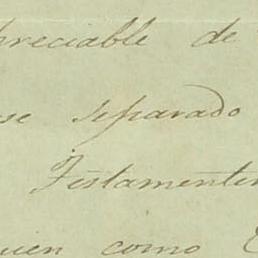 preciable de
se separado
Testamente
quen como